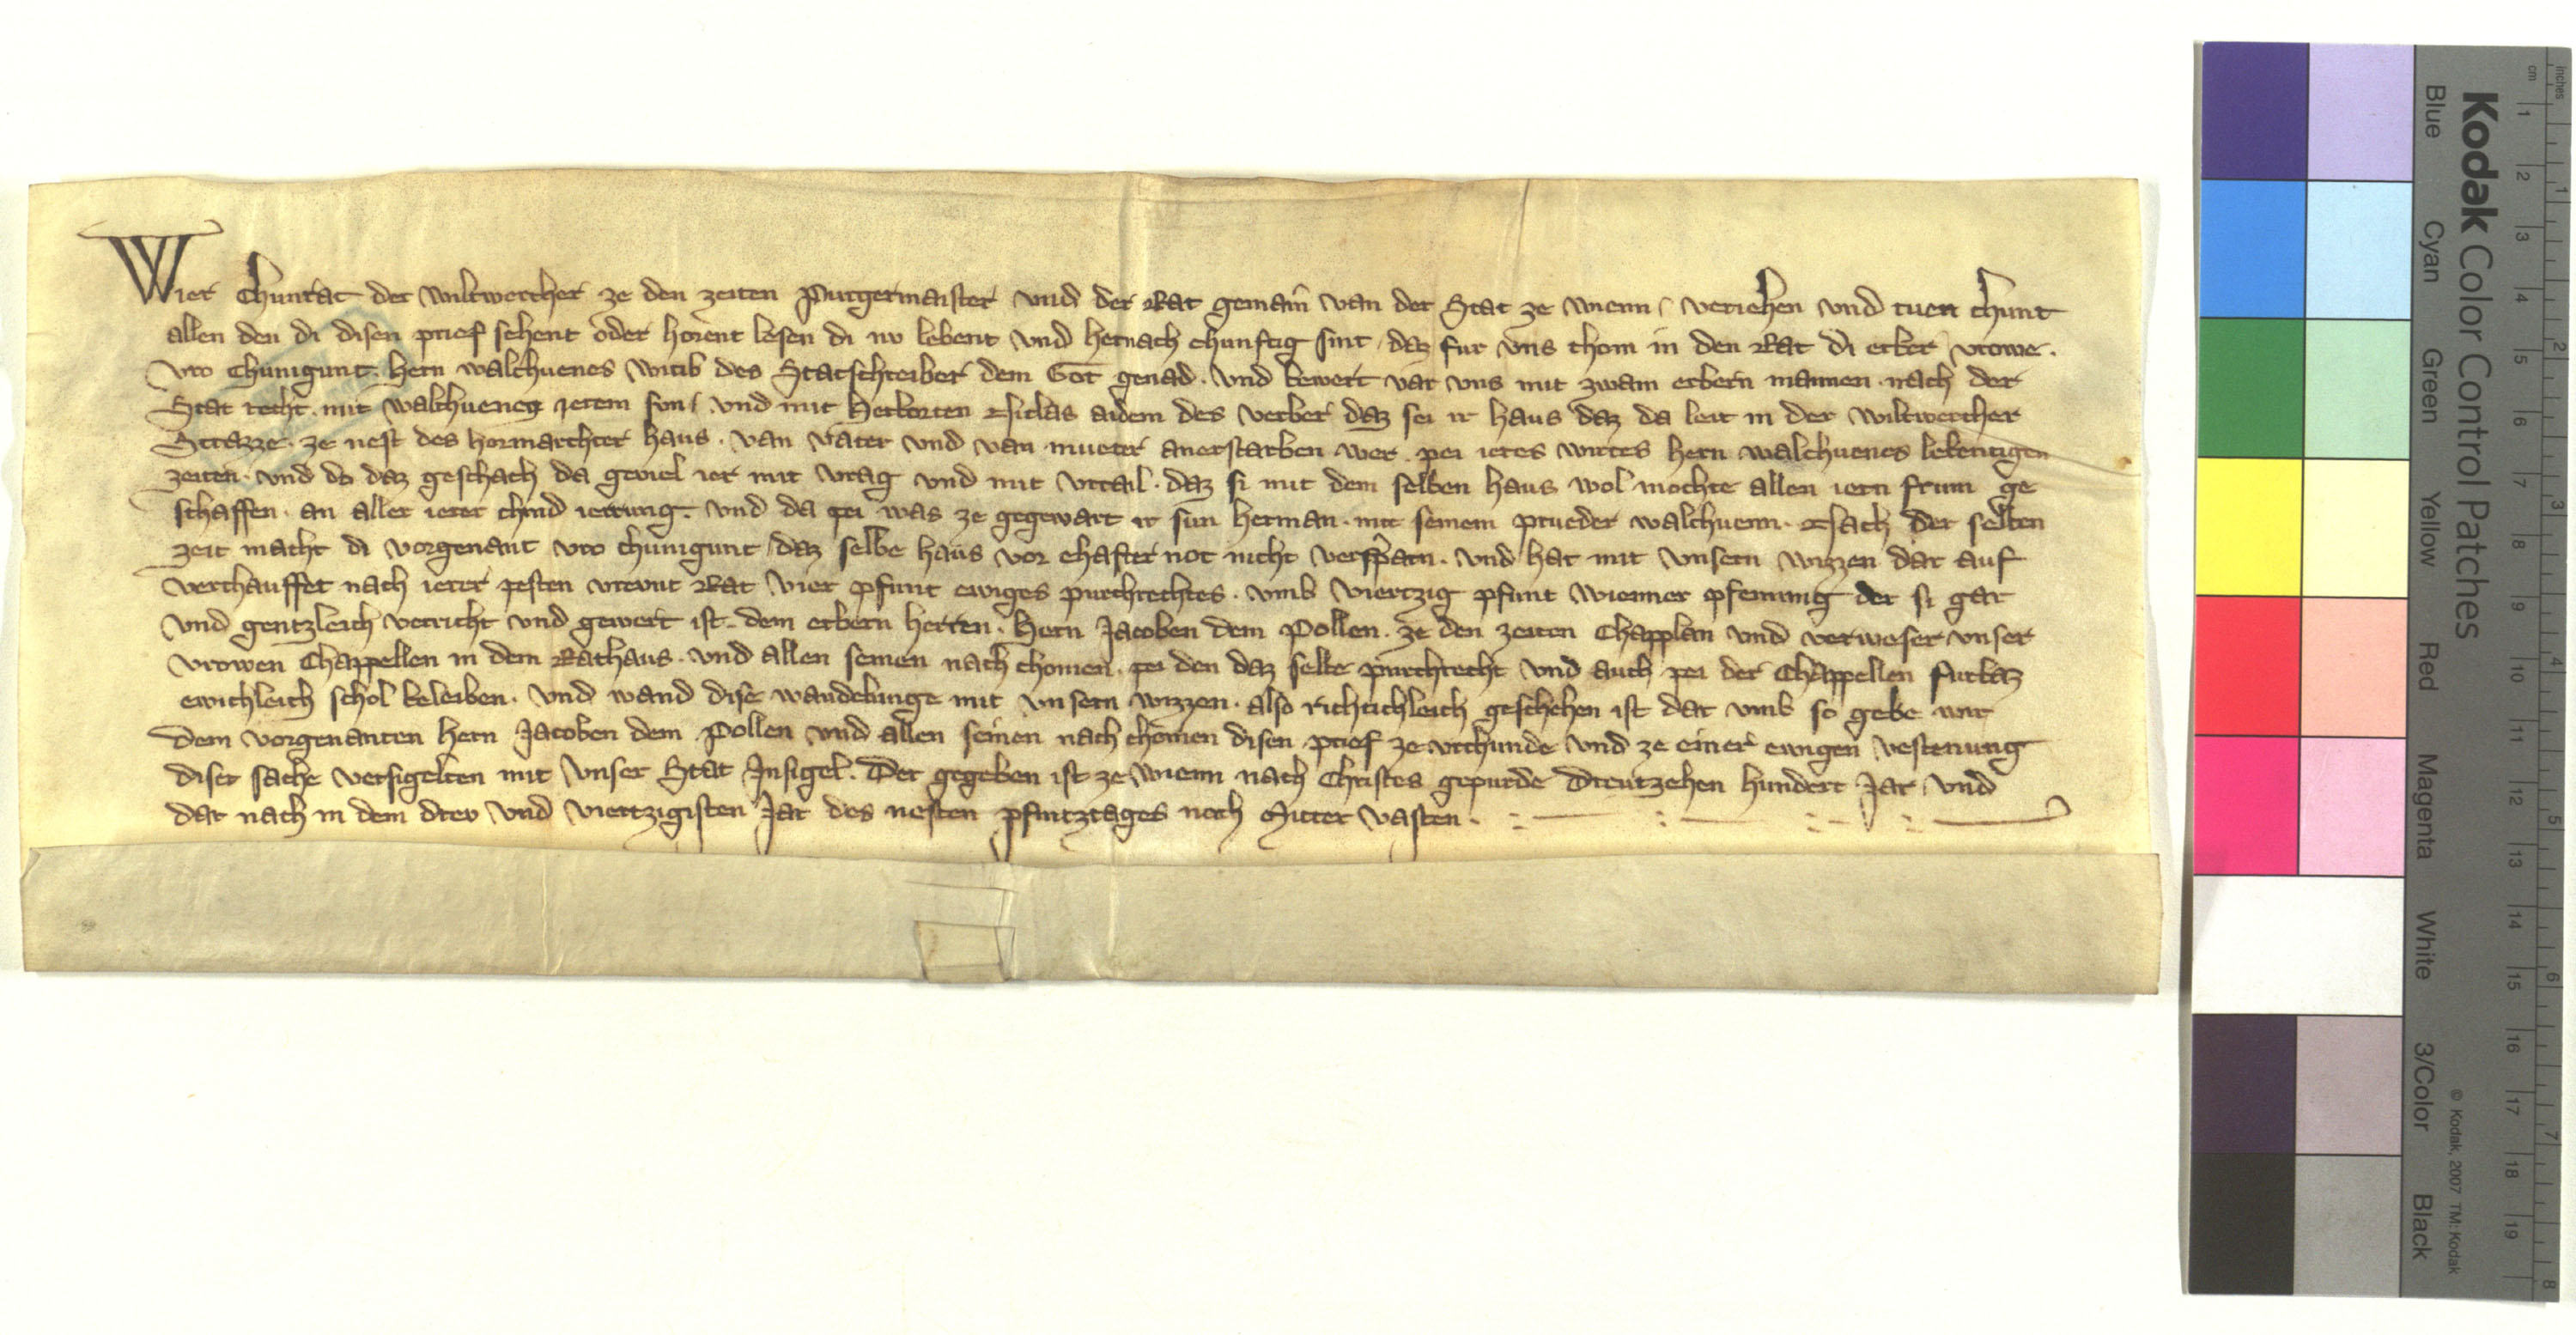 Wier Chunrat der Wiltwercher ze den zeiten Purgermaister vnd der Rat gemain van der Stat ze Wienn / veriehen vnd tuen chunt
allen den di disen prief sehent oder horent lesen di nv lebent vnd hernach chunftig sint / daz fur vns chom in den Rat di erber vrowe .
vro Chunigunt . hern walchuenes witib des Statschreiber dem Got genad . vnd bewert var vns mit zwain erbern mannen . nach der
Stat recht . mit walchuenen ierem son / vnd mit Herborten Niclas aidem des verber daz sei ir haus daz da leit in der wiltwercher
Strazze . ze nest des hormarchter haus . van vater vnd van mueter anerstarben wer . pei ieres wirtes hern walchuenes lebentigen
zeiten . vnd do daz geschach da geviel ier mit vrag vnd mit vrtail . daz si mit dem selben haus wol mochte allen iern frum ge
schaffen . an aller ierer chind ierrung . vnd da pei was ze gegewart ir sun herman . mit seinem prueder walchuenn . Nach der selben
zeit macht di vorgenant vro chunigunt daz selbe haus vor ehafter not nicht versparn . vnd hat mit vnsern wizzen dar auf
verchauffet nach ierer pesten vrevnt Rat vier pfunt ewiges purchrechtes . vmb viertzig pfunt wienner pfenning der si gar
vnd gentzleich verricht vnd gewert ist . dem erbern herren . Hern Jacoben dem Pollen . ze den zeiten Chapplan vnd verweser vnser
vrowen Chappellen in dem Rathaus . vnd allen seinen nach chomen . pei den daz selbe purchrecht vnd auch pei der Chappellen furbaz
ewichleich schol beleiben . vnd wand dise wandelunge mit vnsern wizzen . also richtichleich geschehen ist dar vmb so gebe wir
dem vorgenanten hern Jacoben dem Pollen vnd allen seinen nach chomen disen prief ze vrchunde vnd ze einer ewigen vestenung
diser sache versigelten mit vnser Stat Insigel . Der gegeben ist ze wienn nach Christes gepurde Dreutzehen hundert Jar vnd
dar nach in dem drev vnd viertzigisten Jar des nesten pfintztages nach Mitter vasten .
Kodak Color Control Patches
Blue Cyan Green Yellow Red Magenta White 3/Color Black
© Kodak, 2007 TM: Kodak
inches 1 2 3 4 5 6 7 8
cm 1 2 3 4 5 6 7 8 9 10 11 12 13 14 15 16 17 18 19